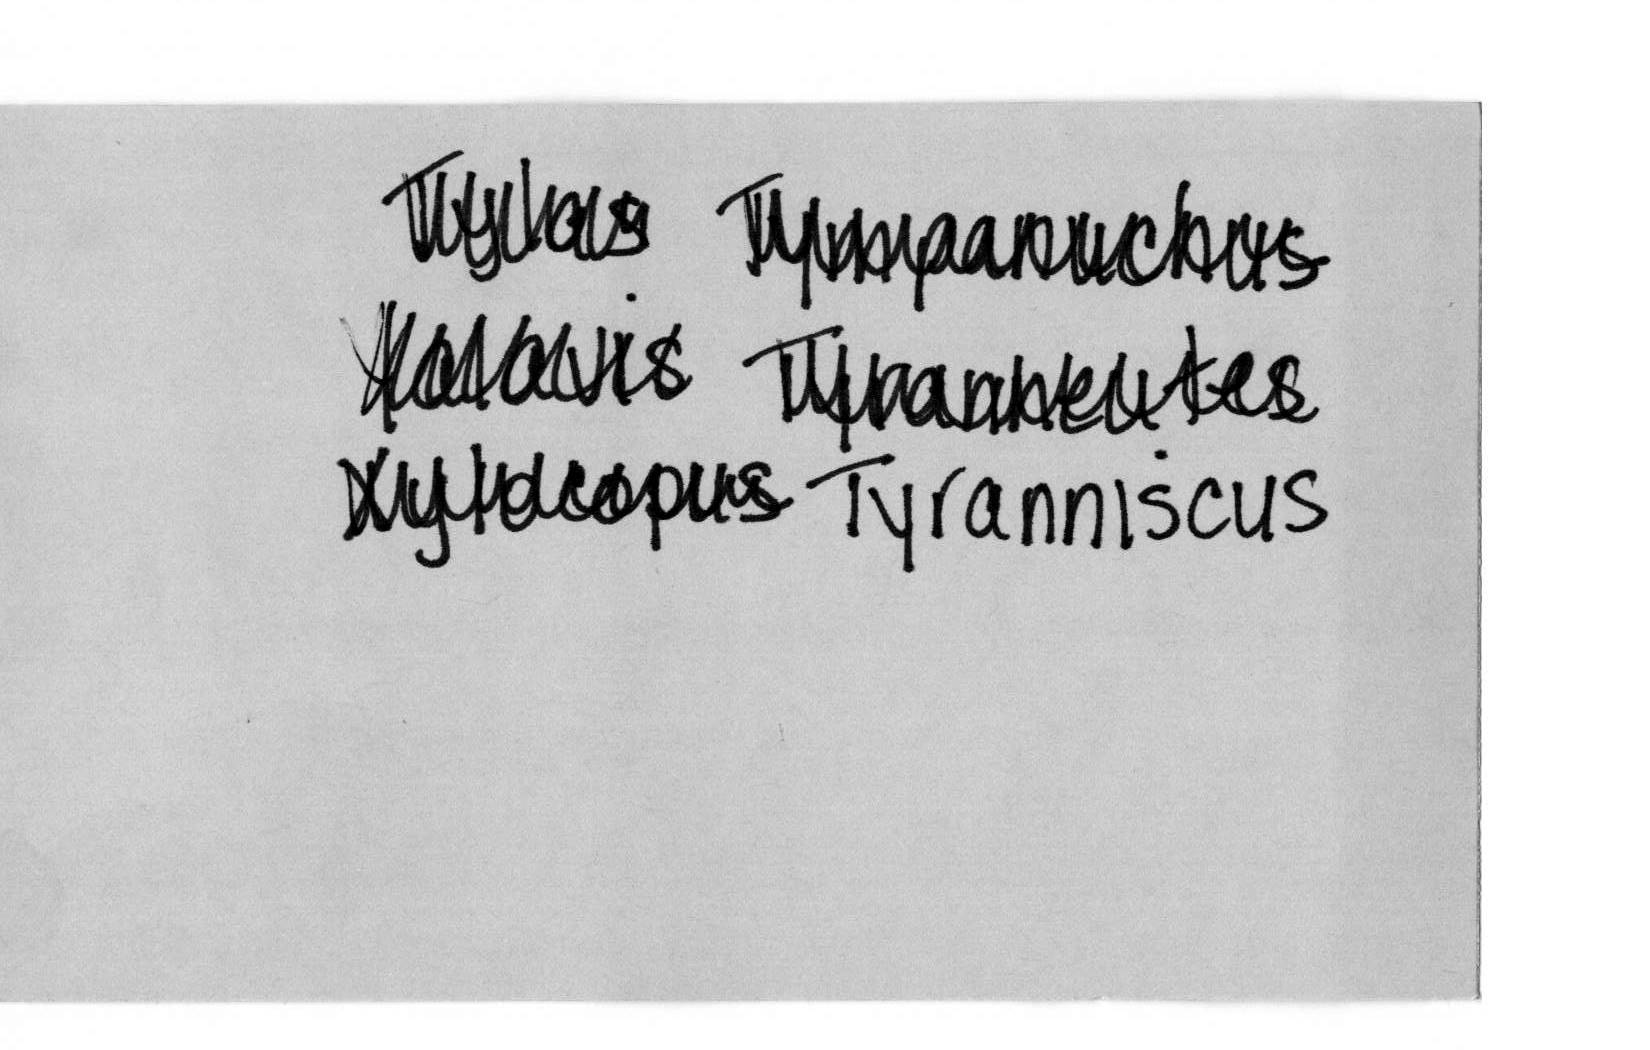 Tylas Tympanuchus
Xolmis Tyranneutes
Xylocopus Tyranniscus